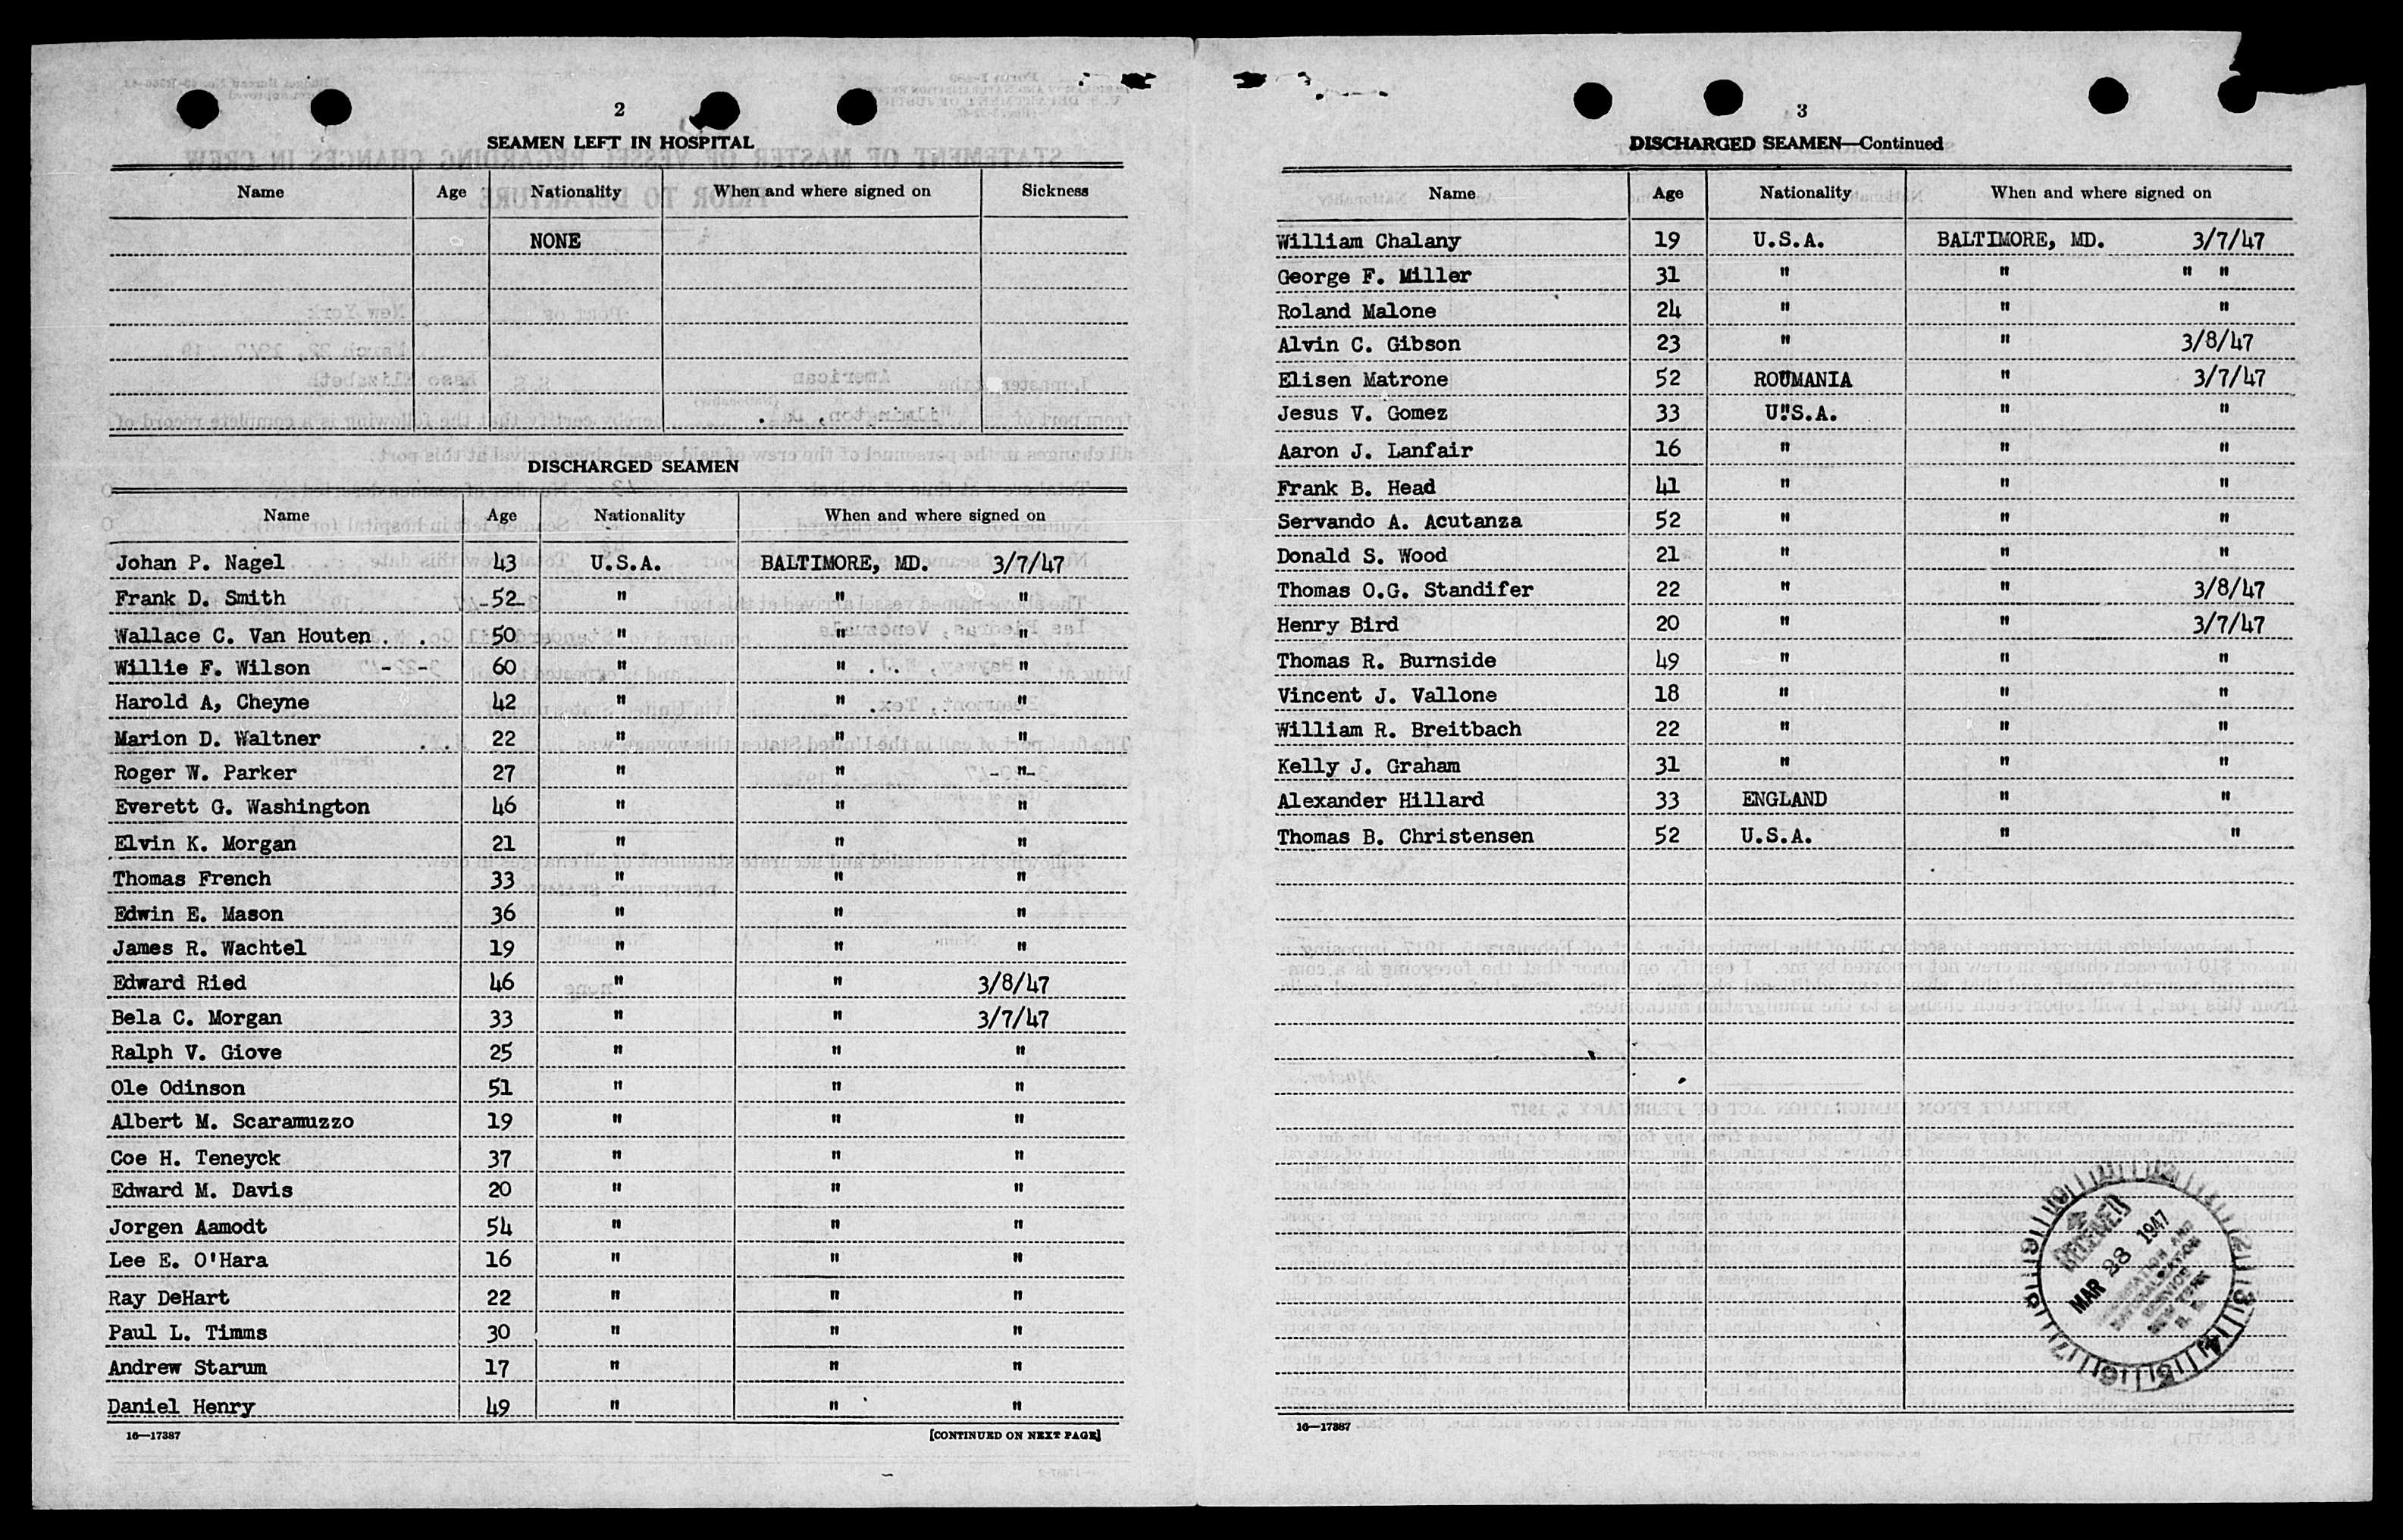 2
SEAMEN LEFT IN HOSPITAL
Name Age Nationality When and where signed on Sickness
NONE
DISCHARGED SEAMEN
Name Age Nationality When and where signed on
Johan P. Nagel 43 U.S.A. BALTIMORE, MD. 3/7/47
Frank D. Smith 52 " " "
Wallace C. Van Houten 50 " " "
Willie F. Wilson 60 " " "
Harold A, Cheyne 42 " " "
Marion D. Waltner 22 " " "
Roger W. Parker 27 " " "
Everett G. Washington 46 " " "
Elvin K. Morgan 21 " " "
Thomas French 33 " " "
Edwin E. Mason 36 " " "
James R. Wachtel 19 " " "
Edward Ried 46 " " 3/8/47
Bela C. Morgan 33 " " 3/7/47
Ralph V. Giove 25 " " "
Ole Odinson 51 " " "
Albert M. Scaramuzzo 19 " " "
Coe H. Teneyck 37 " " "
Edward M. Davis 20 " " "
Jorgen Aamodt 54 " " "
Lee E. O'Hara 16 " " "
Ray DeHart 22 " " "
Paul L. Timms 30 " " "
Andrew Starum 17 " " "
Daniel Henry 49 " " "
16—17387 [CONTINUED ON NEXT PAGE]
3
DISCHARGED SEAMEN—Continued
Name Age Nationality When and where signed on
William Chalany 19 U.S.A. BALTIMORE, MD. 3/7/47
George F. Miller 31 " " " "
Roland Malone 24 " " "
Alvin C. Gibson 23 " " 3/8/47
Elisen Matrone 52 ROUMANIA " 3/7/47
Jesus V. Gomez 33 U.S.A. " "
Aaron J. Lanfair 16 " " "
Frank B. Head 41 " " "
Servando A. Acutanza 52 " " "
Donald S. Wood 21 " " "
Thomas O.G. Standifer 22 " " 3/8/47
Henry Bird 20 " " 3/7/47
Thomas R. Burnside 49 " " "
Vincent J. Vallone 18 " " "
William R. Breitbach 22 " " "
Kelly J. Graham 31 " " "
Alexander Hillard 33 ENGLAND " "
Thomas B. Christensen 52 U.S.A. " "
RECEIVED
MAR 28 1947
IMMIGRATION AND
NATURALIZATION
SERVICE
NEW YORK
16—17387